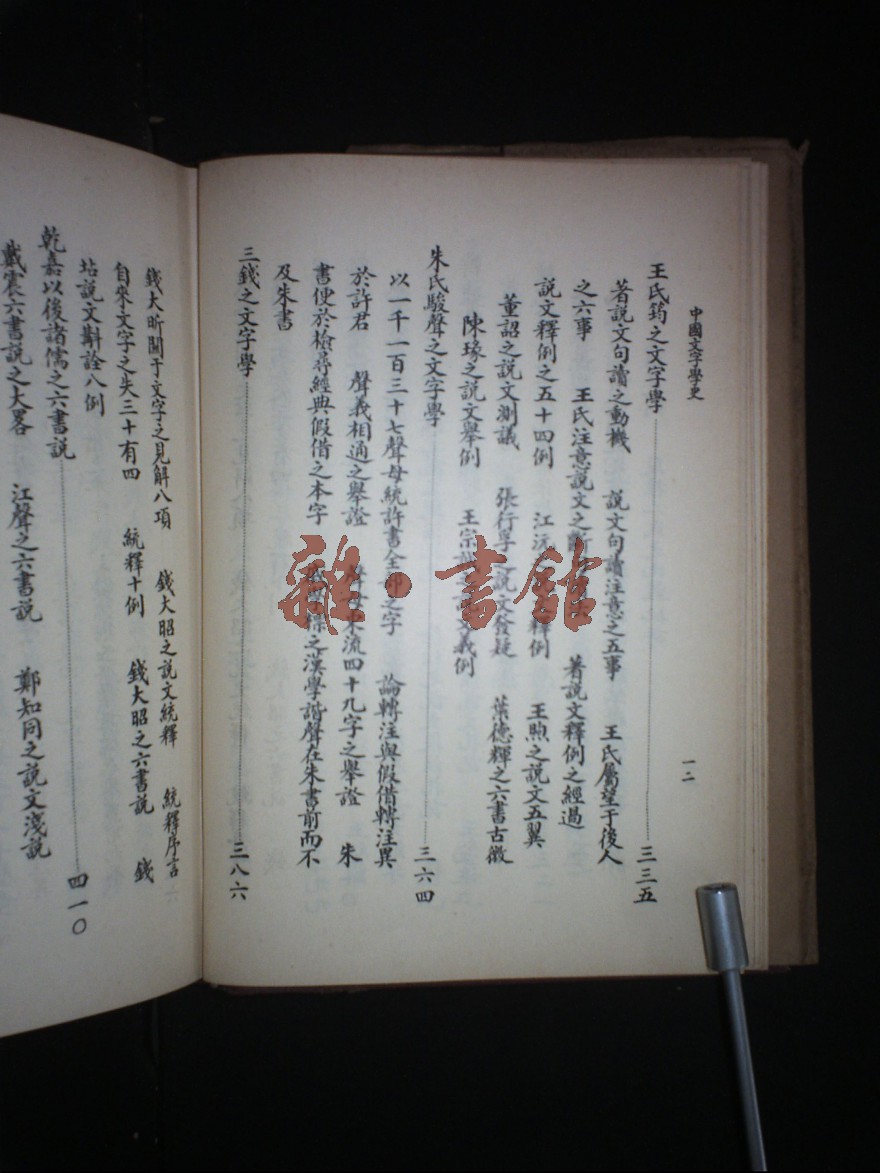 中國文字學史
一二
王氏筠之文字學 三三五
著說文句讀之動機 說文句讀注意之五事 王氏屬望于後人
之六事 王氏注意說文之斷 著說文釋例之經過
說文釋例之五十四例 江沅 釋例 王煦之說文五翼
董詔之說文測議 張行孚之說文發疑 葉德輝之六書古微
陳瑑之說文舉例 王宗 說文義例
朱氏駿聲之文字學 三六四
以一千一百三十七聲母統許書全部之字 論轉注與假借轉注異
於許君 聲義相通之舉證 流四十九字之舉證 朱
書便於檢尋經典假借之本字 之漢學諧聲在朱書前而不
及朱書
三錢之文字學 三八六
錢大昕關于文字之見解八項 錢大昭之說文統釋 統釋序言
自來文字之失三十有四 統釋十例 錢大昭之六書說 錢
坫說文斠詮八例
乾嘉以後諸儒之六書說 四一〇
戴震六書說之大畧 江聲之六書說 鄭知同之說文淺說
雜·書館